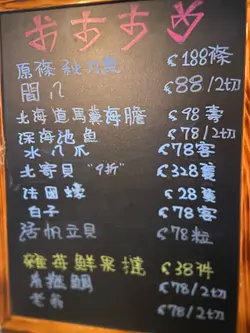 おすすめ
原條秋刀魚 $188條
閘八 $88/2切
北海道馬糞海膽 $98壽
深海池魚 $78/2切
水八爪 $78客
北寄貝 "9折" $328隻
法國蠔 $28隻
白子 $78客
活帆立貝 $78粒
雜莓鮮果撻 $38件
鯛 $78/2切
$78/2切